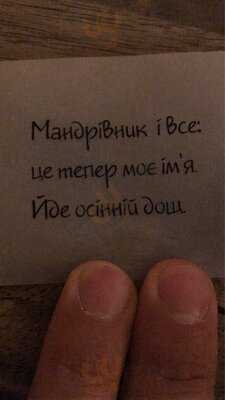 Мандрівник і все:
це тепер моє ім'я.
Йде осінній дощ.